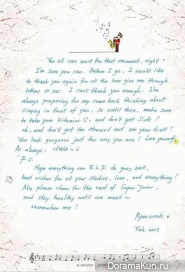 You all can wait for that moment, right?
I'm sure you can. Before I go, I would like
to thank you again for all the love give me through
letters or sns. I can't thank you enough. I'm
always preparing for my come back thinking about
singing in front of you. So until then, make sure
to take your Vitamins C and don't get sick!
oh, and don't get too stressed out on your diet!
You look gorgeous just the way you are! love yourself
As always
P.S.
Hope everything our E.L.F do goes well,
best wishes for all your studies, love, and everything!
Also please cheer for the rest of Super Junior,
and stay healthy until we meet ~
remember me!
Ryeowook
Feb 2017
Doramakun.ru